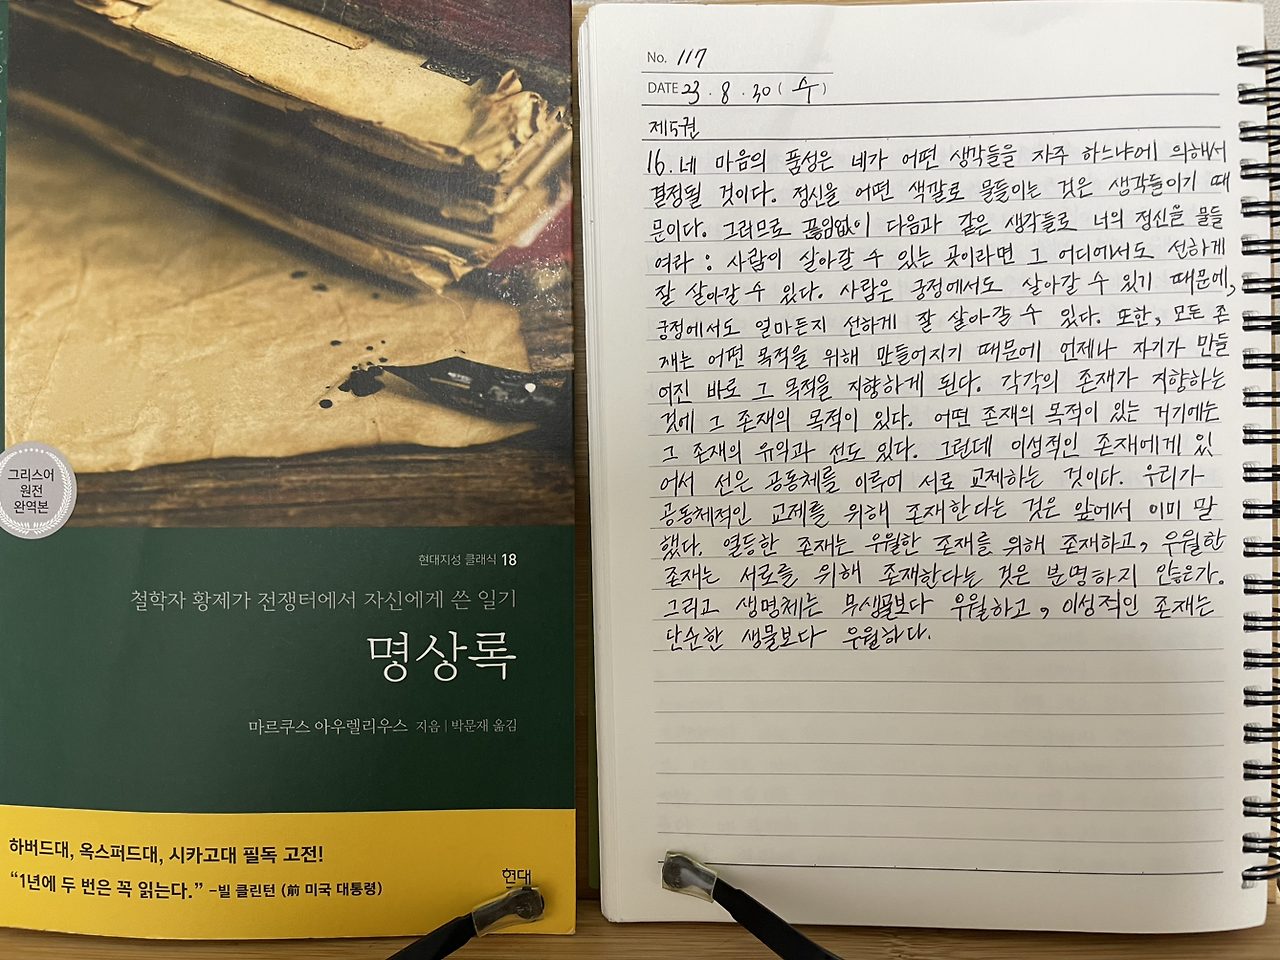 그리스어
원전
완역본
현대지성 클래식 18
철학자 황제가 전쟁터에서 자신에게 쓴 일기
명상록
마르쿠스 아우렐리우스 지음 | 박문재 옮김
하버드대, 옥스퍼드대, 시카고대 필독 고전!
“1년에 두 번은 꼭 읽는다.” –빌 클린턴 (前 미국 대통령)
현대
No. 117
DATE 23 . 8 . 30 ( 수 )
제5권
16. 네 마음의 품성은 네가 어떤 생각들을 자주 하느냐에 의해서
결정될 것이다. 정신을 어떤 색깔로 물들이는 것은 생각들이기 때
문이다. 그러므로 끊임없이 다음과 같은 생각들로 너의 정신을 물들
여라 : 사람이 살아갈 수 있는 곳이라면 그 어디에서도 선하게
잘 살아갈 수 있다. 사람은 궁정에서도 살아갈 수 있기 때문에,
궁정에서도 얼마든지 선하게 잘 살아갈 수 있다. 또한, 모든 존
재는 어떤 목적을 위해 만들어지기 때문에 언제나 자기가 만들
어진 바로 그 목적을 지향하게 된다. 각각의 존재가 지향하는
것에 그 존재의 목적이 있다. 어떤 존재의 목적이 있는 거기에는
그 존재의 유익과 선도 있다. 그런데 이성적인 존재에게 있
어서 선은 공동체를 이루어 서로 교제하는 것이다. 우리가
공동체적인 교제를 위해 존재한다는 것은 앞에서 이미 말
했다. 열등한 존재는 우월한 존재를 위해 존재하고, 우월한
존재는 서로를 위해 존재한다는 것은 분명하지 않은가.
그리고 생명체는 무생물보다 우월하고, 이성적인 존재는
단순한 생물보다 우월하다.